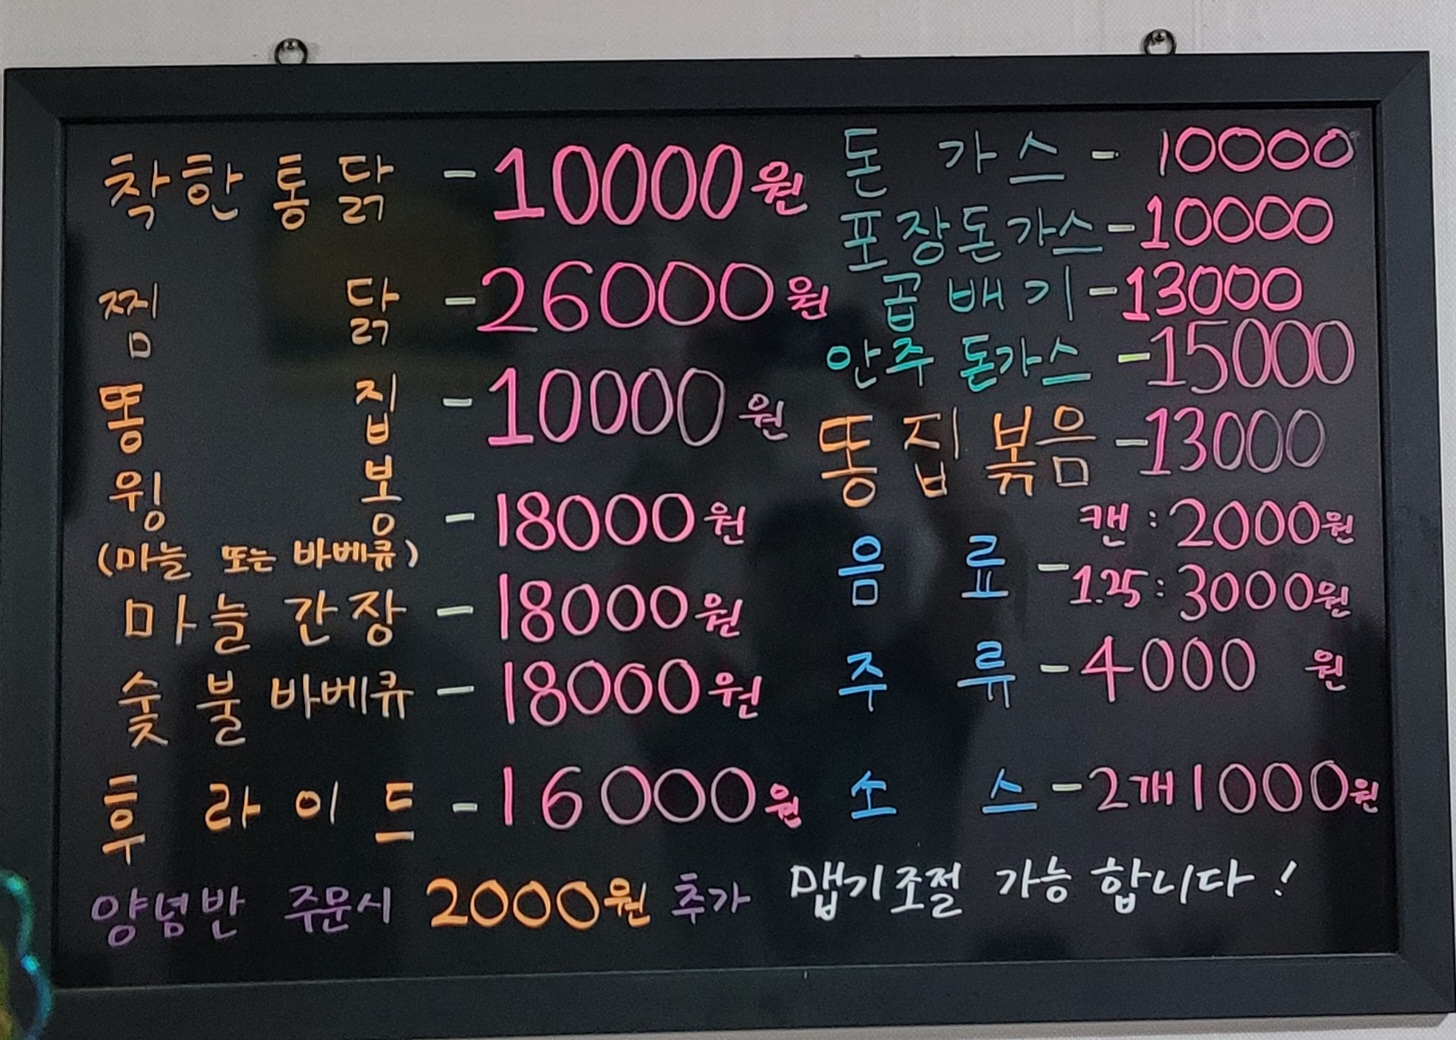 착한통닭 - 10000원
찜닭 - 26000원
똥집 - 10000원
윙봉 - 18000원
(마늘 또는 바베큐)
마늘 간장 - 18000원
숯불바베큐 - 18000원
후라이드 - 16000원
양념반 주문시 2000원 추가
돈가스 - 10000
포장돈가스 - 10000
곱배기 - 13000
안주 돈가스 - 15000
똥집볶음 - 13000
음료 - 캔 : 2000원
1.25 : 3000원
주류 - 4000 원
소스 - 2개 1000원
맵기조절 가능 합니다!